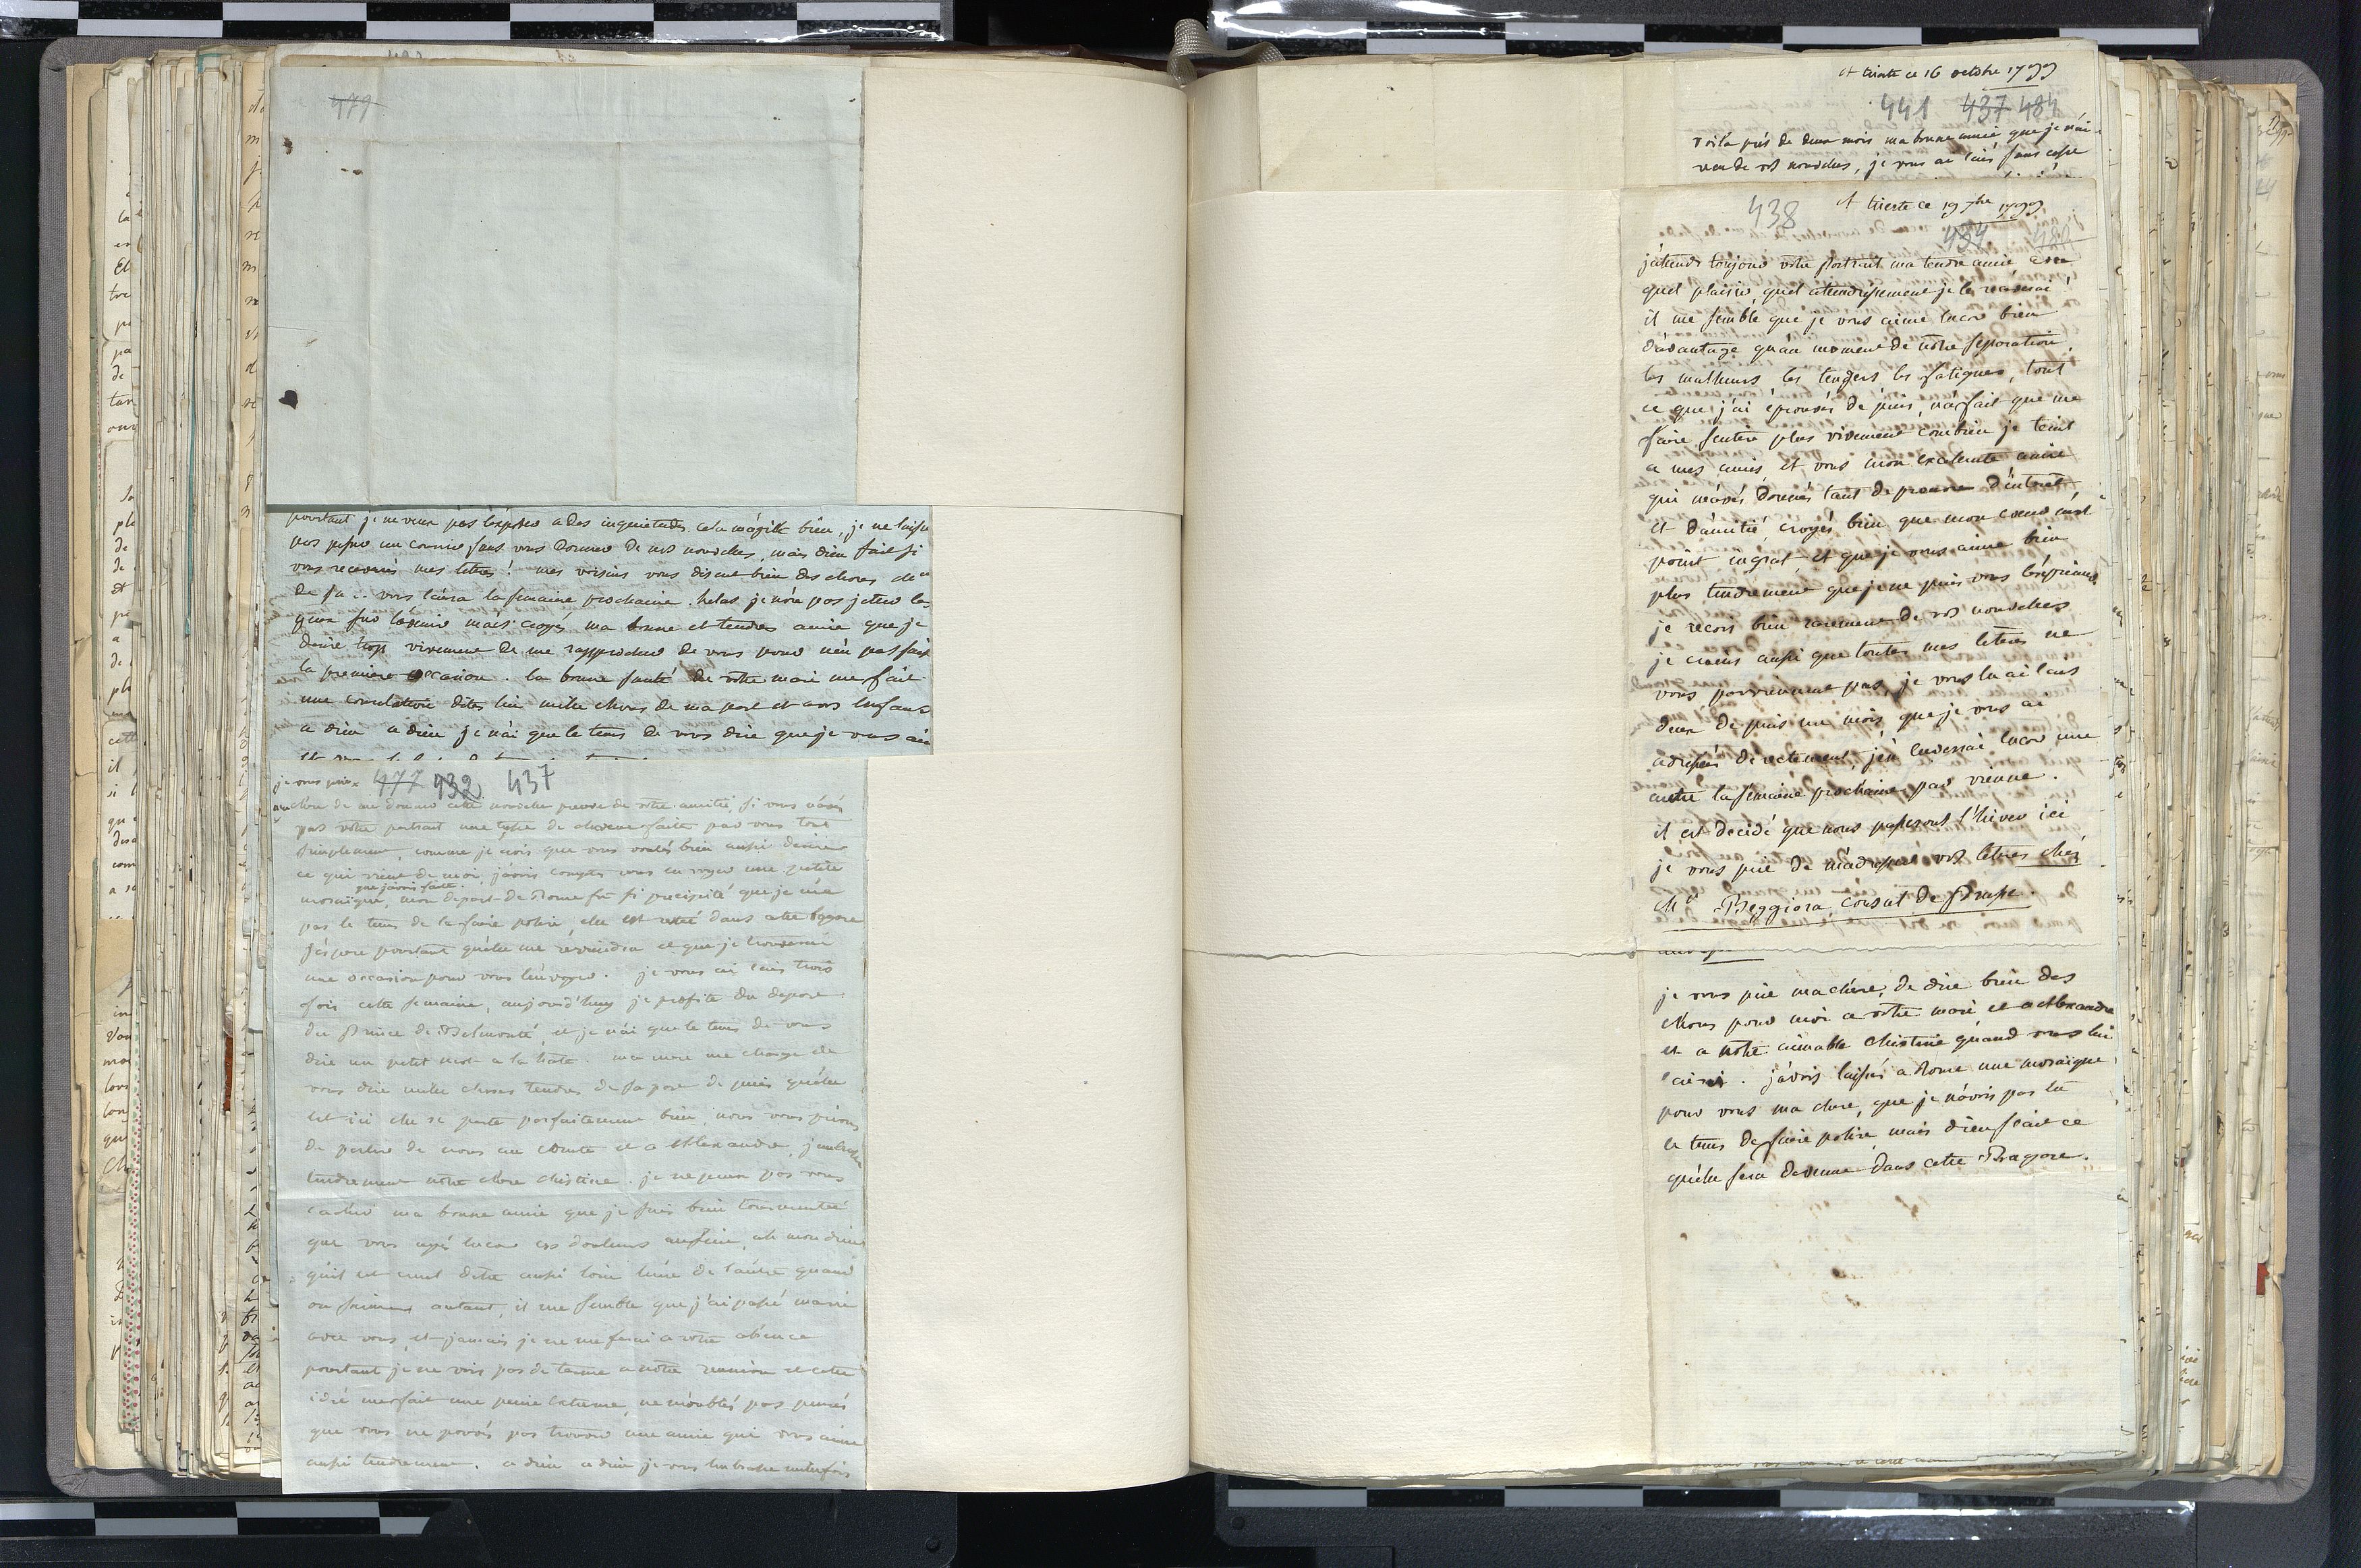 479
pourtant je ne veux pas l'exposer a des inquietudes. cela m'afflit bien, je ne laisse
pas passer un courrier sans vous donner de nos nouvelles, mais dieu sait si
vous recevrés mes lettres! mes voisins vous disent bien des choses
de sa vous écrira la semaine prochaine. helas je n'ôse pas jeter les
yeux sur l'avenir mais croyés ma bonne et tendre amie que je
desire trop vivement de me rapprocher de vous pour n'en pas saisir
la premiere occasion. la bonne santé de votre mari me fait
une consolation dites lui mille choses de ma part et a vos enfans
a dieu a dieu je n'ai que le tems de vous dire que je vous aime
je vous prie 477 432 437
chere de me donner cette nouvelle preuve de votre amitié, si vous n'avés
pas votre portrait une tresse de cheveux faite par vous tout
simplement, comme je crois que vous voulés bien aussi desirer
ce qui vient de moi, j'avois comptés vous envoyer une petite
que j'avois faite.
mosaïque, mon depart de Rome fut si precipité que je n'eu
pas le tems de la faire polire, elle est resté dans cette bagare
j'éspere pourtant qu'elle me reviendra et que je trouverai
une occasion pour vous l'envoyer. je vous ai écris trois
fois cette semaine, aujourd'huy je profite du depare
du Prince de Belmonté, et je n'ai que le tems de vous
dire un petit mot a la hate. ma mere me charge de
vous dire mille choses tendres de sa part de puis qu'elle
est ici elle se porte parfaitement bien, nous vous prions
de parler de nous au comte et a Alexandre, j'embrasse
tendrement notre chere Christine. je ne peux pas vous
cacher ma bonne amie que je suis bien tourmentée
que vous ayé encore ces douleurs au sein, ah mon dieu
qu'il est cruel d'etre aussi loin l'une de l'autre quand
on s'aiment autant, il me semble que j'ai passé ma vie
avec vous, et jamais je ne me ferai a votre absence
pourtant je ne vois pas de terme a notre reunion et cette
idée me fait une peine extreme, ne m'oubliés pas pensés
que vous ne pouvés pas trouver une amie qui vous aime
aussi tendrement. a dieu a dieu je vous embrasse mille fois
A trieste ce 16 octobre 1799
441 437 484
voila prés de deux mois ma bonne amie que je n'ai
reçu de vos nouvelles, je vous ai écris sans cesse
438 A trieste ce 19 7bre 1799
434 480
j'attends toujour votre portrait ma tendre amie avec
quel plaisir, quel attendrissement je le recevrai!
il me semble que je vous aime encore bien
d'avantage qu'au moment de notre separation,
les malheurs, les dangers les fatigues, tout
ce que j'ai éprouvés de puis, n'a fait que me
faire sentire plus vivement combien je teint
a mes amis, et vous mon excelente amie
qui m'avés donnés tant de preuve d'interet
et d'amitié, croyés bien que mon coeur n'est
point ingrat, et que je vous aime bien
plus tendrement que je ne puis vous l'exprimer
je reçois bien rarement de vos nouvelles
je crains aussi que toutes mes lettres ne
vous parviennent pas, je vous en ai écris
deux de puis un mois que je vous ai
adressés directement, j'en enverrai encore une
autre la semaine prochaine par vienne.
il est decidé que nous passerons l'hiver ici,
je vous prie de m'adresser vos lettres chez
Mr Peggiora, consul de Prusse.
je vous prie ma chere, de dire bien des
choses pour moi a votre mari et a Alexandre
et a notre aimable Christine quand vous lui
écrirés. j'avois laissés a Rome une mosaïque
pour vous ma chere, que je n'avois pas eu
le tems de faire polire, mais dieu sait ce
qu'elle sera devenue dans cette Bagare.